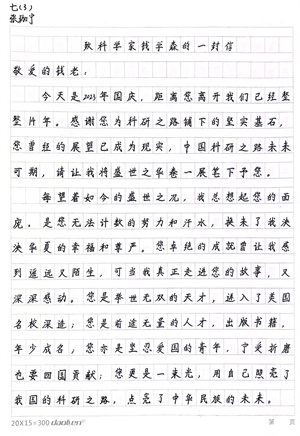 七(3)
致科学家钱学森的一封信
敬爱的钱老：
今天是2023年国庆，距离您离开我们已经整
整14年。感谢您为科研之路铺下的坚实基石，
您曾经的展望已成为现实，中国科研之路未来
可期，请让我将盛世之华卷一展笔下予您。
每望着如今的盛世之况，我总想起您的面
庞。是您无法计数的努力和汗水，换来了我泱
泱华夏的幸福和尊严。您卓绝的成就曾让我感
到遥远又陌生，可当我真正走进您的故事，又
深深感动。您是举世无双的天才，进入了美国
名校深造；您是前途无量的人才，出版书籍，
年少成名；您亦是坚忍爱国的青年，宁受折磨
也要回国贡献；您更是一束光，用自己照亮了
我国的科研之路，点亮了中华民族的未来。
20X15=300
页